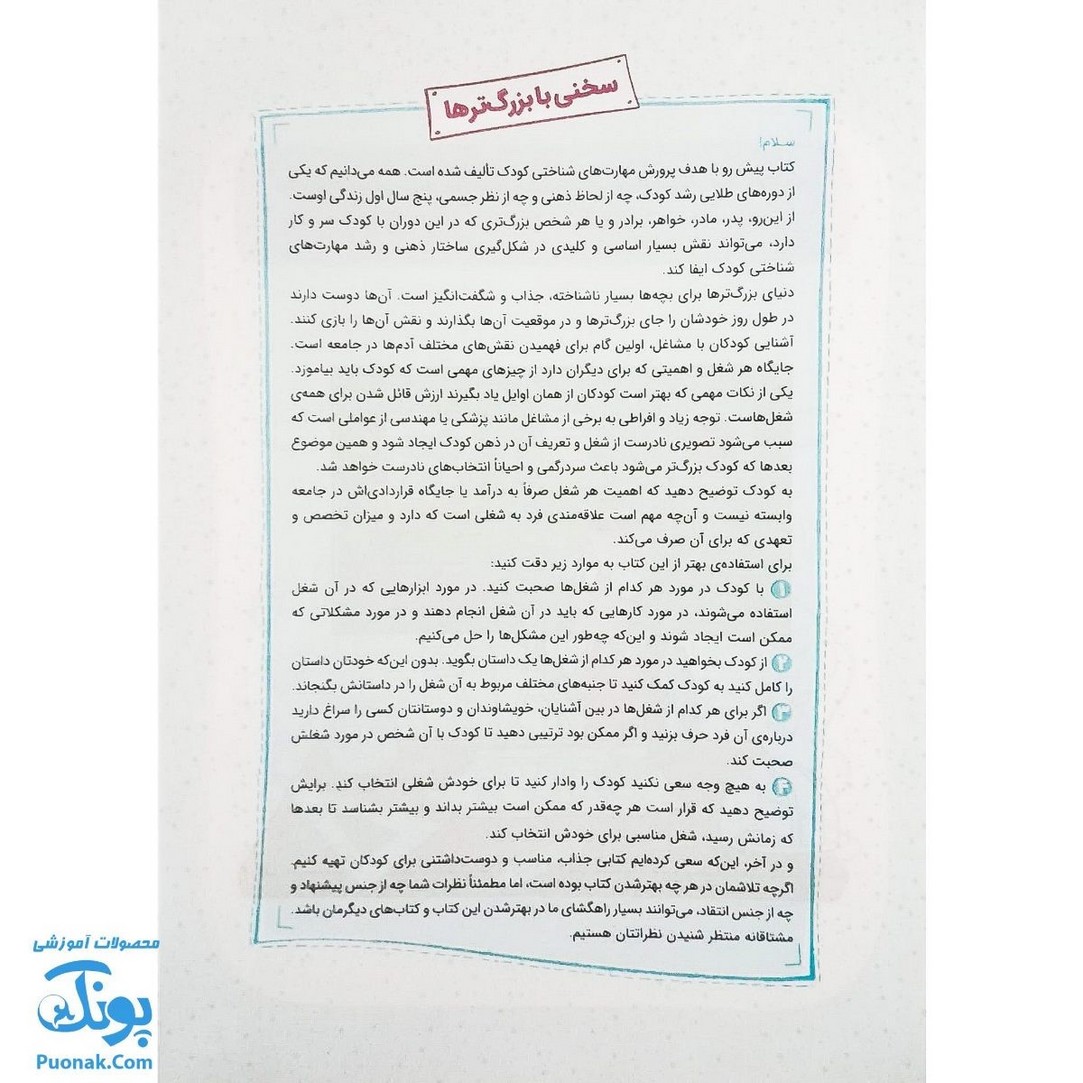 سخنی با بزرگ‌ترها
سلام!
کتاب پیش رو با هدف پرورش مهارت‌های شناختی کودک تألیف شده است. همه می‌دانیم که یکی
از دوره‌های طلایی رشد کودک، چه از لحاظ ذهنی و چه از نظر جسمی، پنج سال اول زندگی اوست.
از این‌رو، پدر، مادر، خواهر، برادر و یا هر شخص بزرگ‌تری که در این دوران با کودک سر و کار
دارد، می‌تواند نقش بسیار اساسی و کلیدی در شکل‌گیری ساختار ذهنی و رشد مهارت‌های
شناختی کودک ایفا کند.
دنیای بزرگ‌ترها برای بچه‌ها بسیار ناشناخته، جذاب و شگفت‌انگیز است. آن‌ها دوست دارند
در طول روز خودشان را جای بزرگ‌ترها و در موقعیت آن‌ها بگذارند و نقش آن‌ها را بازی کنند.
آشنایی کودکان با مشاغل، اولین گام برای فهمیدن نقش‌های مختلف آدم‌ها در جامعه است.
جایگاه هر شغل و اهمیتی که برای دیگران دارد از چیزهای مهمی است که کودک باید بیاموزد.
یکی از نکات مهمی که بهتر است کودکان از همان اوایل یاد بگیرند ارزش قائل شدن برای همه‌ی
شغل‌هاست. توجه زیاد و افراطی به برخی از مشاغل مانند پزشکی یا مهندسی از عواملی است که
سبب می‌شود تصویری نادرست از شغل و تعریف آن در ذهن کودک ایجاد شود و همین موضوع
بعدها که کودک بزرگ‌تر می‌شود باعث سردرگمی و احیاناً انتخاب‌های نادرست خواهد شد.
به کودک توضیح دهید که اهمیت هر شغل صرفاً به درآمد یا جایگاه قراردادی‌اش در جامعه
وابسته نیست و آن‌چه مهم است علاقه‌مندی فرد به شغلی است که دارد و میزان تخصص و
تعهدی که برای آن صرف می‌کند.
برای استفاده‌ی بهتر از این کتاب به موارد زیر دقت کنید:
۱ با کودک در مورد هر کدام از شغل‌ها صحبت کنید. در مورد ابزارهایی که در آن شغل
استفاده می‌شوند، در مورد کارهایی که باید در آن شغل انجام دهند و در مورد مشکلاتی که
ممکن است ایجاد شوند و این‌که چه‌طور این مشکل‌ها را حل می‌کنیم.
۲ از کودک بخواهید در مورد هر کدام از شغل‌ها یک داستان بگوید. بدون این‌که خودتان داستان
را کامل کنید به کودک کمک کنید تا جنبه‌های مختلف مربوط به آن شغل را در داستانش بگنجاند.
۳ اگر برای هر کدام از شغل‌ها در بین آشنایان، خویشاوندان و دوستانتان کسی را سراغ دارید
درباره‌ی آن فرد حرف بزنید و اگر ممکن بود ترتیبی دهید تا کودک با آن شخص در مورد شغلش
صحبت کند.
۴ به هیچ وجه سعی نکنید کودک را وادار کنید تا برای خودش شغلی انتخاب کند. برایش
توضیح دهید که قرار است هر چه‌قدر که ممکن است بیشتر بداند و بیشتر بشناسد تا بعدها
که زمانش رسید، شغل مناسبی برای خودش انتخاب کند.
و در آخر، این‌که سعی کرده‌ایم کتابی جذاب، مناسب و دوست‌داشتنی برای کودکان تهیه کنیم.
اگرچه تلاشمان در هر چه بهترشدن کتاب بوده است، اما مطمئناً نظرات شما چه از جنس پیشنهاد و
چه از جنس انتقاد، می‌توانند بسیار راهگشای ما در بهترشدن این کتاب و کتاب‌های دیگرمان باشد.
مشتاقانه منتظر شنیدن نظراتتان هستیم.
محصولات آموزشی
پونک
Puonak.Com